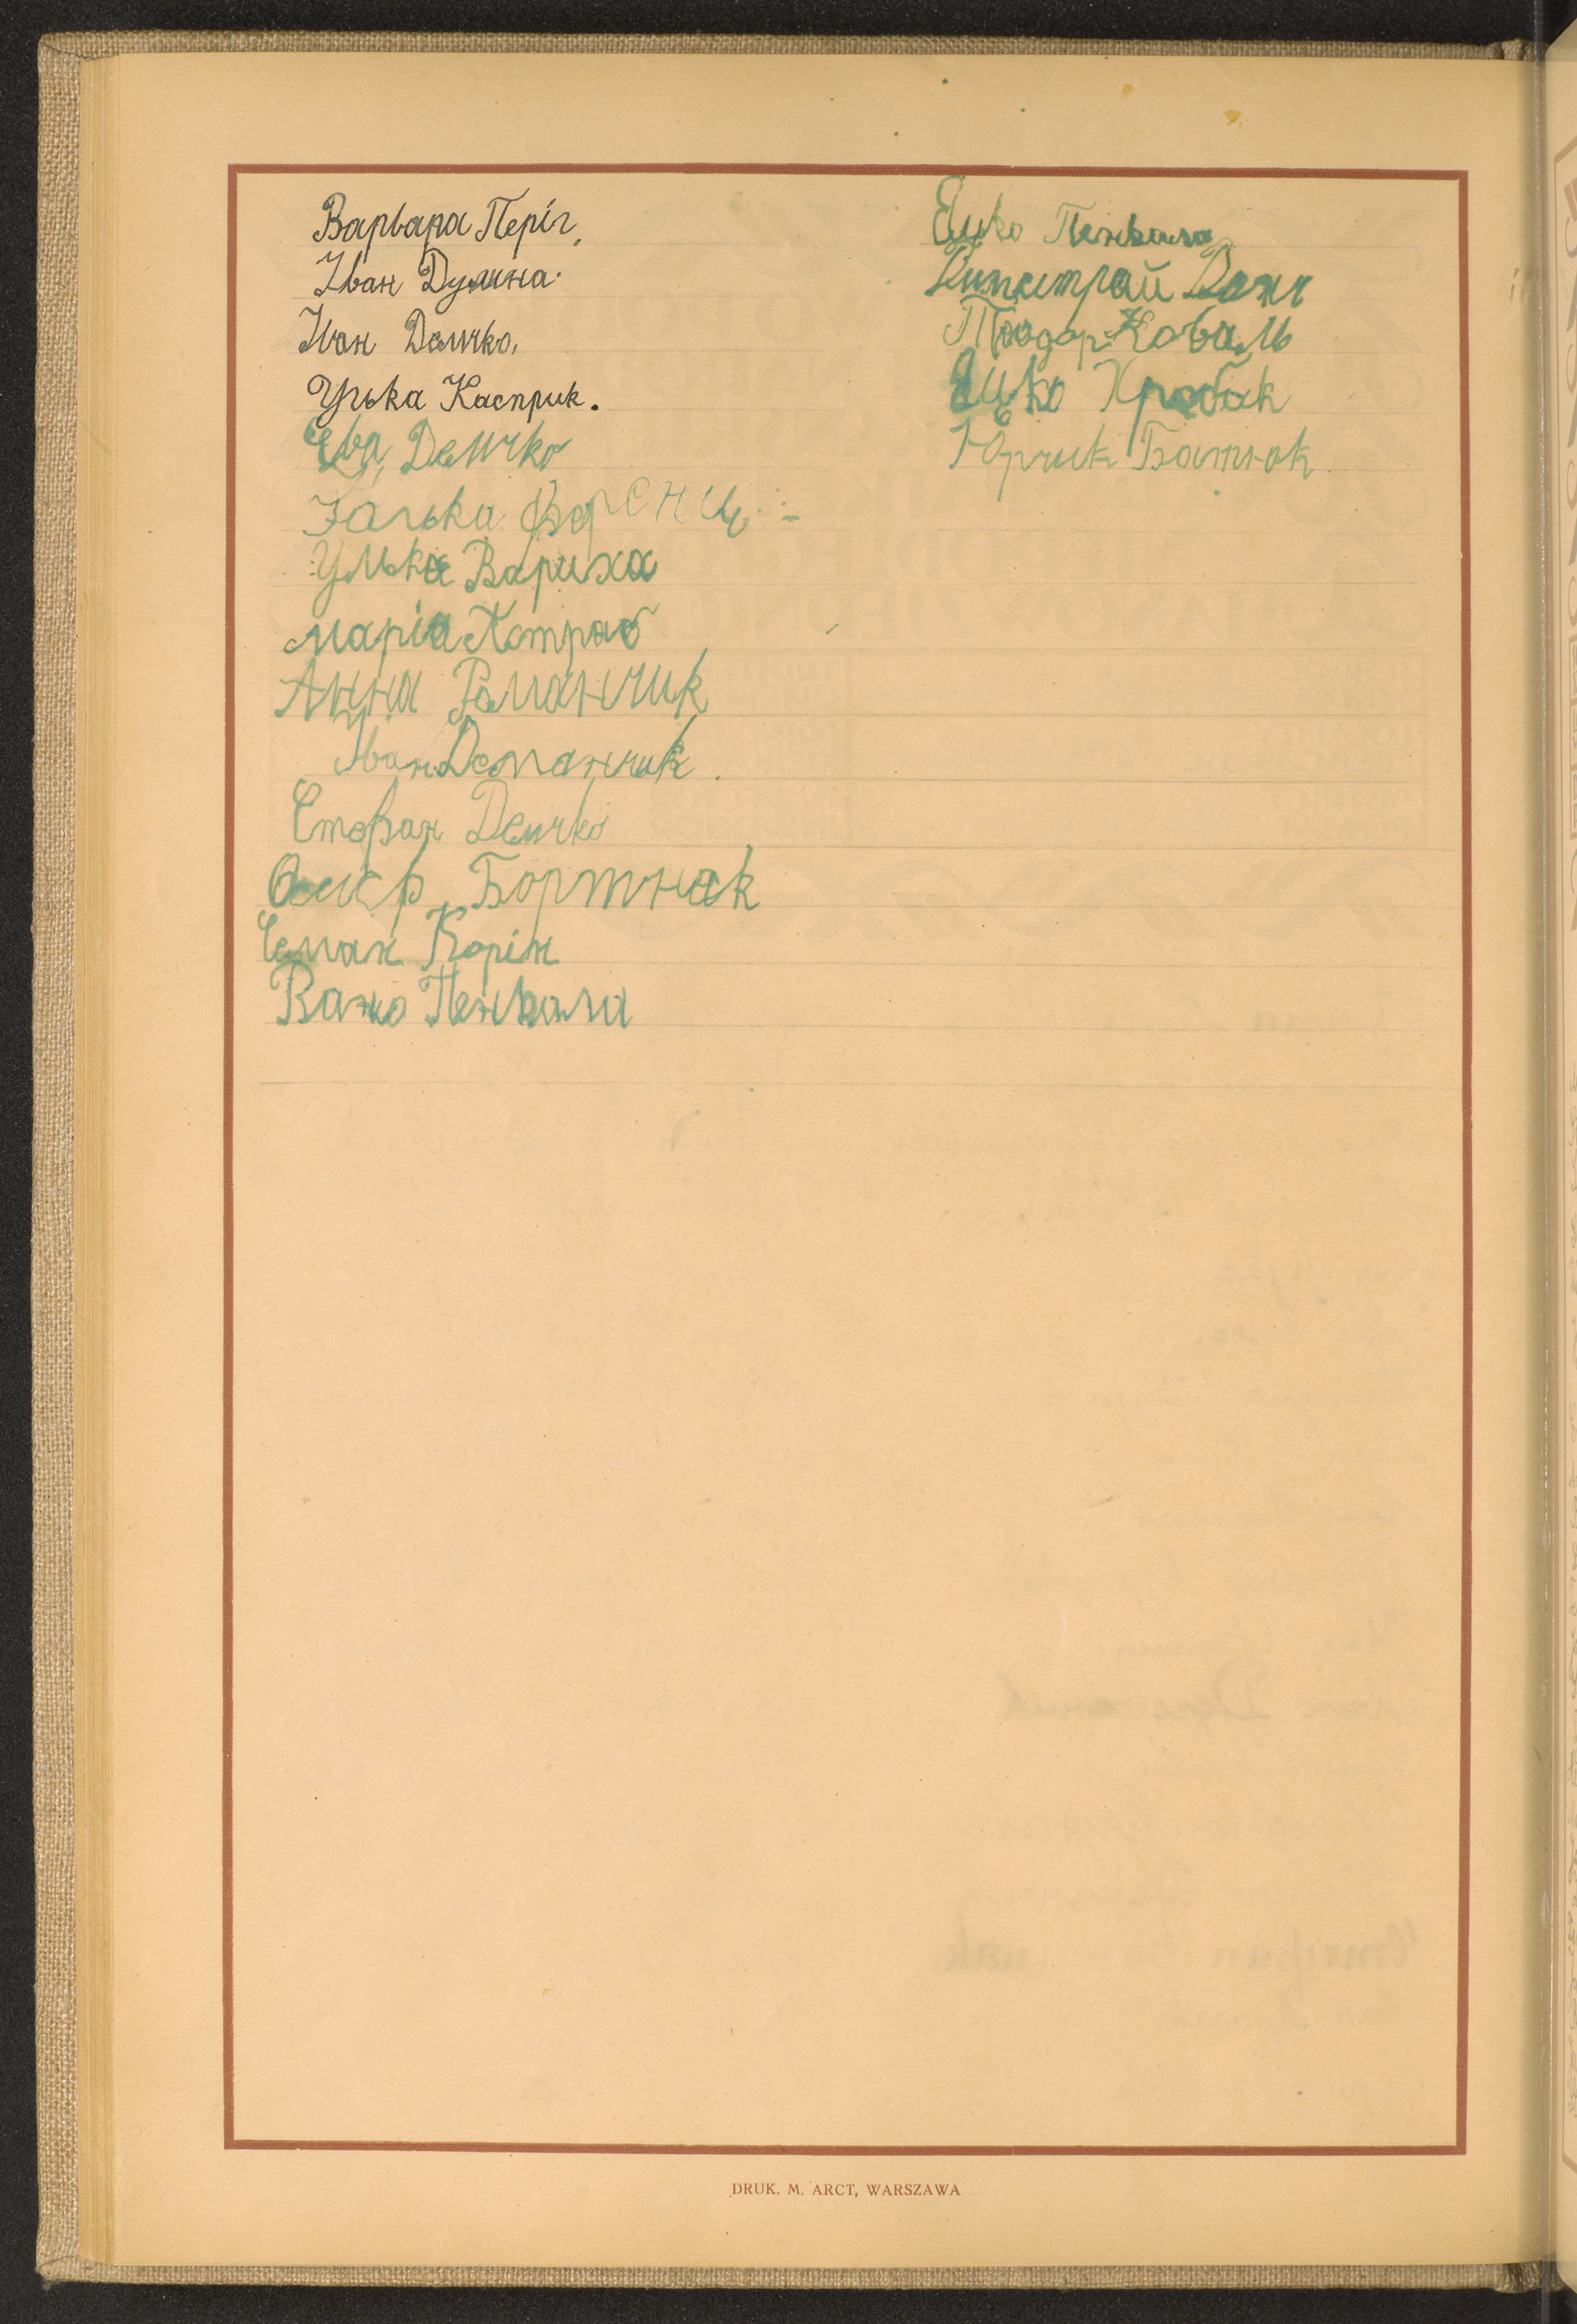 Варвара Періг,
Іван Дулина.
Іван Демчко,
Улька Касприк.
Ева Демчко
Улька Вариха
Марія Котраб
Анна Романчик
Іван Деманчик.
Стефан Демчко
Бортнак
Семан Корін
Ваньо Пенкала
Ецко Пенкала
Теодор Коваль
Ецко Хробак
Юрчик Батнюк
DRUK. M. ARCT, WARSZAWA